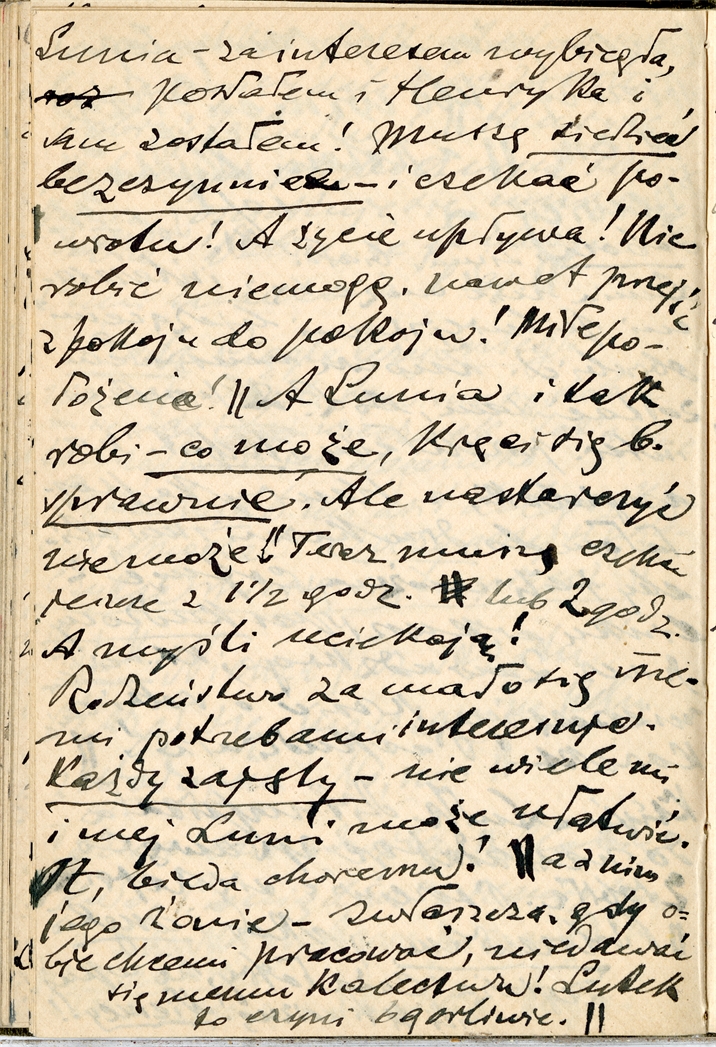 Lunia – za interesem wybiegła,
posłałem i Henryka i
sam zostałem! Muszę siedzieć
bezczynnie – i czekać po-
wrotu! A życie upływa! Nic
robić niemogę, nawet przejść
z pokoju do pokoju! Miłe po-
łożenie! || A Lunia i tak
robi – co może, kręci się b.
sprawnie. Ale nastarczyć
nie może! Teraz muszę czekać
z 1 1/2 godz. lub 2 godz.
A myśli uciekają!
Rodzeństwo za mało się me-
mi potrzebami interesuje.
Każdy zajęty – nie wiele mi
i mej Luni może ułatwić.
Ot, bieda choremu! || a z nim
jego żonie – zwłaszcza, gdy o-
boje chcemi pracować, niedawać
się memu kalectwu! Lutek
to czyni gorliwie. ||